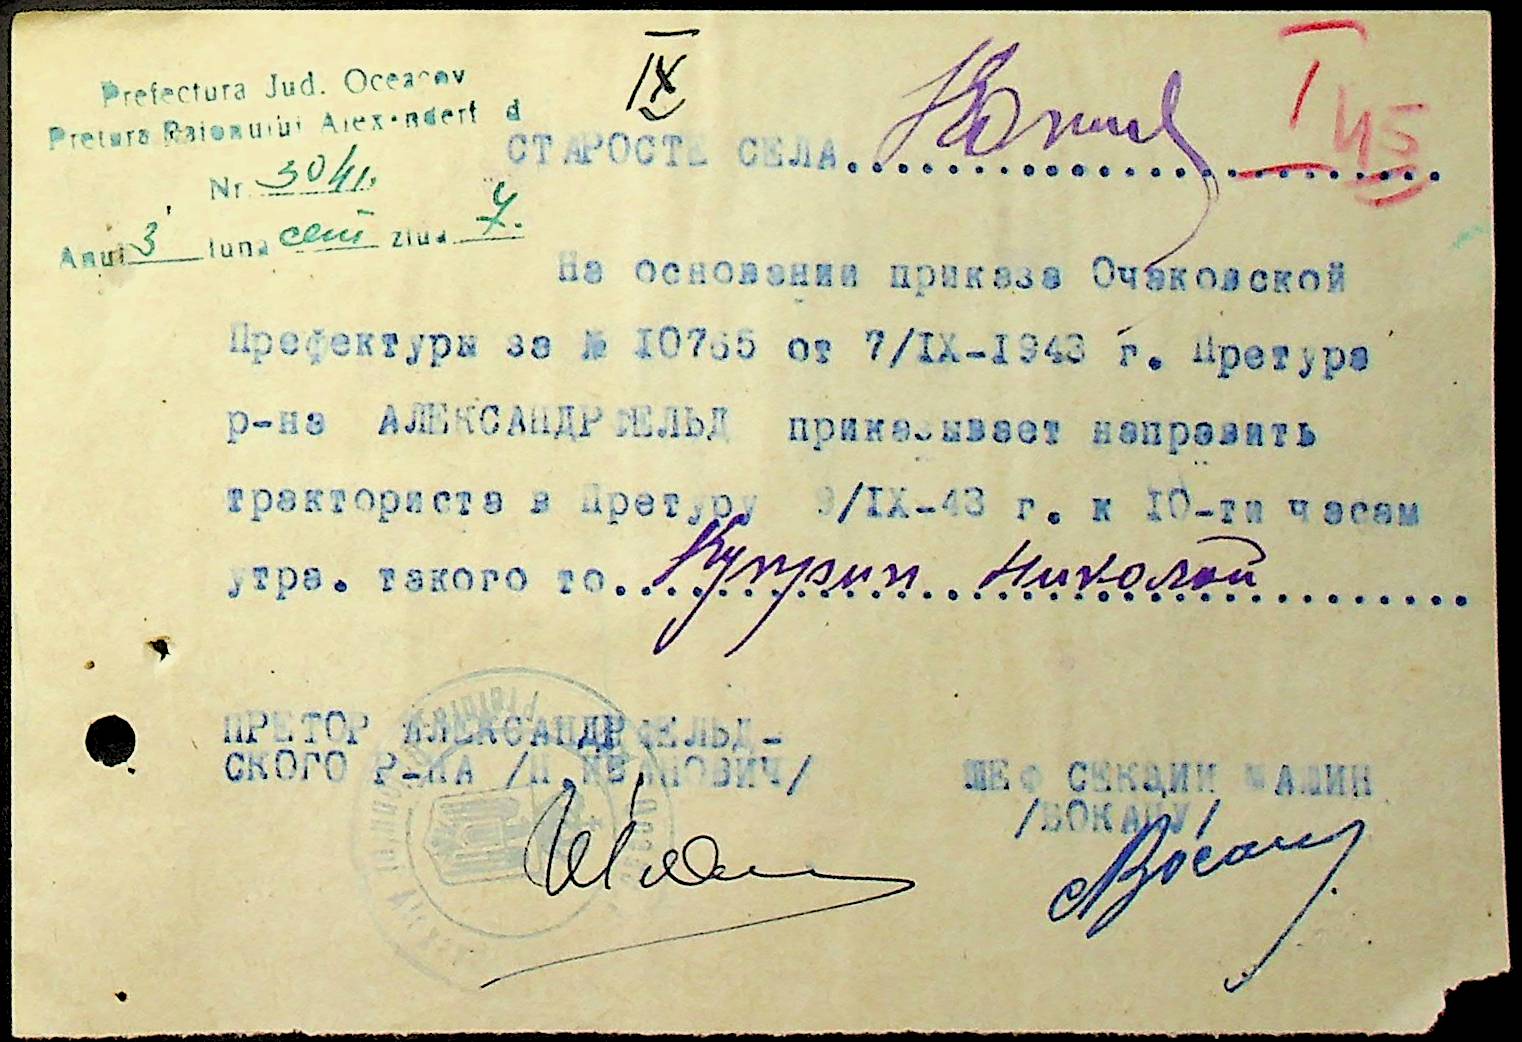 Prefectura Jud. Oceacov
Pretura Raionului Alexanderf d
Nr. 3041.
Anul 3 luna ziua 7.
IX
I 45
СТАРОСТЕ СЕЛА..............................
На основании приказа Очаковской
Префектуры за № 10765 от 7/IX-1943 г. Претура
р-на АЛЕКСАНДРФЕЛЬД приказывает направить
тракториста в Претуру 9/IX-43 г. к 10-ти часам
утра. такого то....Куприн Николай..........
ПРЕТОР АЛЕКСАНДРФЕЛЬД-
СКОГО Р-НА /П.ИВАНОВИЧ/
ШЕФ СЕКЦИИ МАШИН
/БОКАНУ/